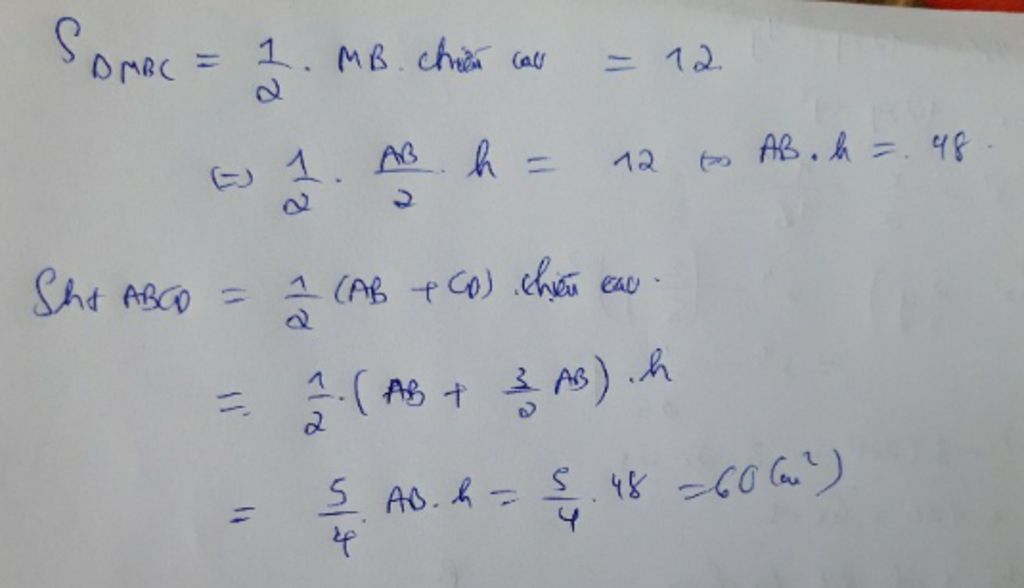 SΔMBC = 1/2 . MB . chiều cao = 12
⇔ 1/2 . AB/2 . h = 12 ⇔ AB . h = 48.
Sht ABCD = 1/2 (AB + CD) . chiều cao.
= 1/2 . (AB + 3/2 AB) . h
= 5/4 . AB . h = 5/4 . 48 = 60 (cm²)